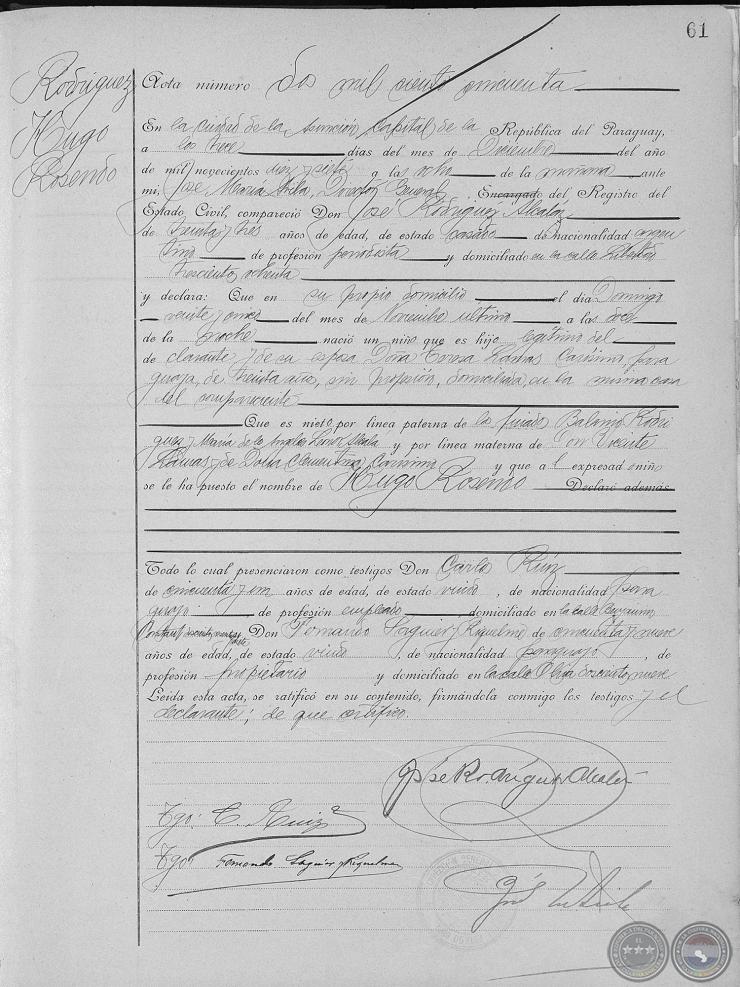 61
Rodríguez
Hugo
Rosendo
Acta número dos mil ciento cincuenta
En la ciudad de la Asunción, Capital de la República del Paraguay,
a los trece días del mes de Diciembre del año
de mil novecientos diez y siete a las ocho de la mañana ante
mí, José María Director General Encargado del Registro del
Estado Civil, compareció Don José Rodríguez Alcalá
de treinta y tres años de edad, de estado casado de nacionalidad argen
tino de profesión periodista y domiciliado en la calle Libertad
trescientos ochenta
y declara: Que en su propio domicilio el día Domingo
veinte y cinco del mes de Noviembre último a las doce
de la noche nació un niño que es hijo legítimo del
declarante y de su esposa Doña Teresa Lamas Carísimo, para
guaya, de treinta años, sin profesión, domiciliada en la misma casa
del compareciente
Que es nieto por línea paterna de los finados Rodrí
guez y María de los Angeles Alcalá y por línea materna de Don Vicente
Lamas y de Doña Clementina Carísimo y que a l expresado niño
se le ha puesto el nombre de Hugo Rosendo Declaró además
Todo lo cual presenciaron como testigos Don Carlos Ruiz
de cincuenta y un años de edad, de estado viudo, de nacionalidad para
guayo de profesión empleado domiciliado en la calle
Don Fernando Saguier y Riquelme de cincuenta y nueve
años de edad, de estado viudo, de nacionalidad paraguayo, de
profesión propietario y domiciliado en la calle Oliva doscientos nueve
Leída esta acta, se ratificó en su contenido, firmándola conmigo los testigos y el
declarante; de que certifico.
José Rodríguez Alcalá
Tgo: C. Ruiz
Tgo: Fernando Saguier y Riquelme